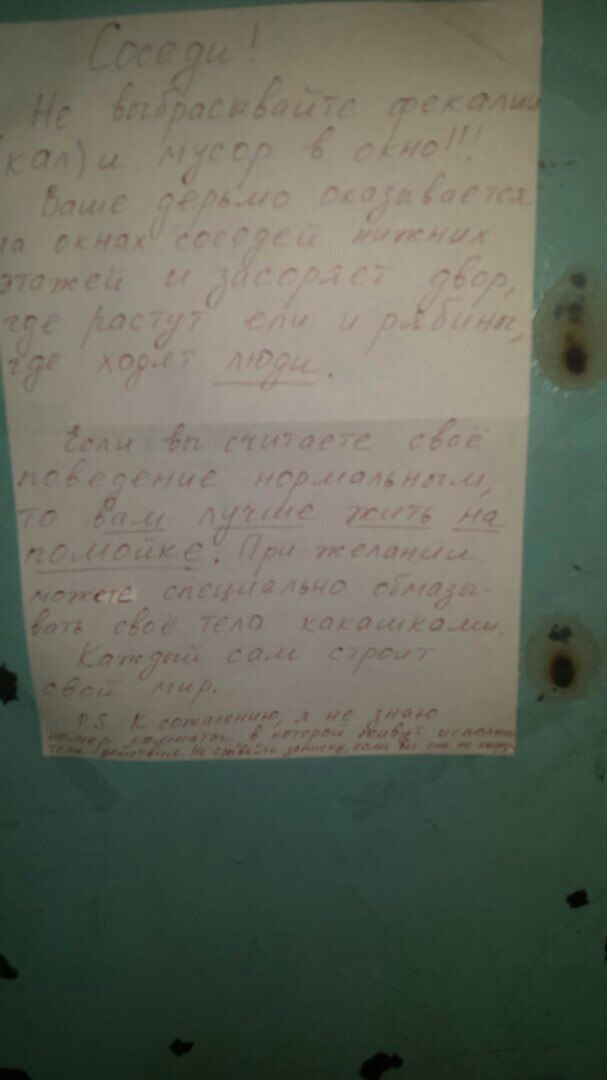 Соседи!
Не выбрасквайте фекалии
(кал) и мусор в окно!!!
Ваше дерьмо оказывается
на окнах соседей нижних
этажей и засоряет двор,
где растут ели и рябины,
где ходят люди.
Если вы считаете своё
поведение нормальным,
то вам лучше жить на
помойке. При желании
можете специально обмазы-
вать своё тело какашками.
Каждый сам строит
свой мир.
P.S. К сожалению, я не знаю
номер комнаты, в которой живут исполни-
тели действия. Не срывайте записку, если вас это не